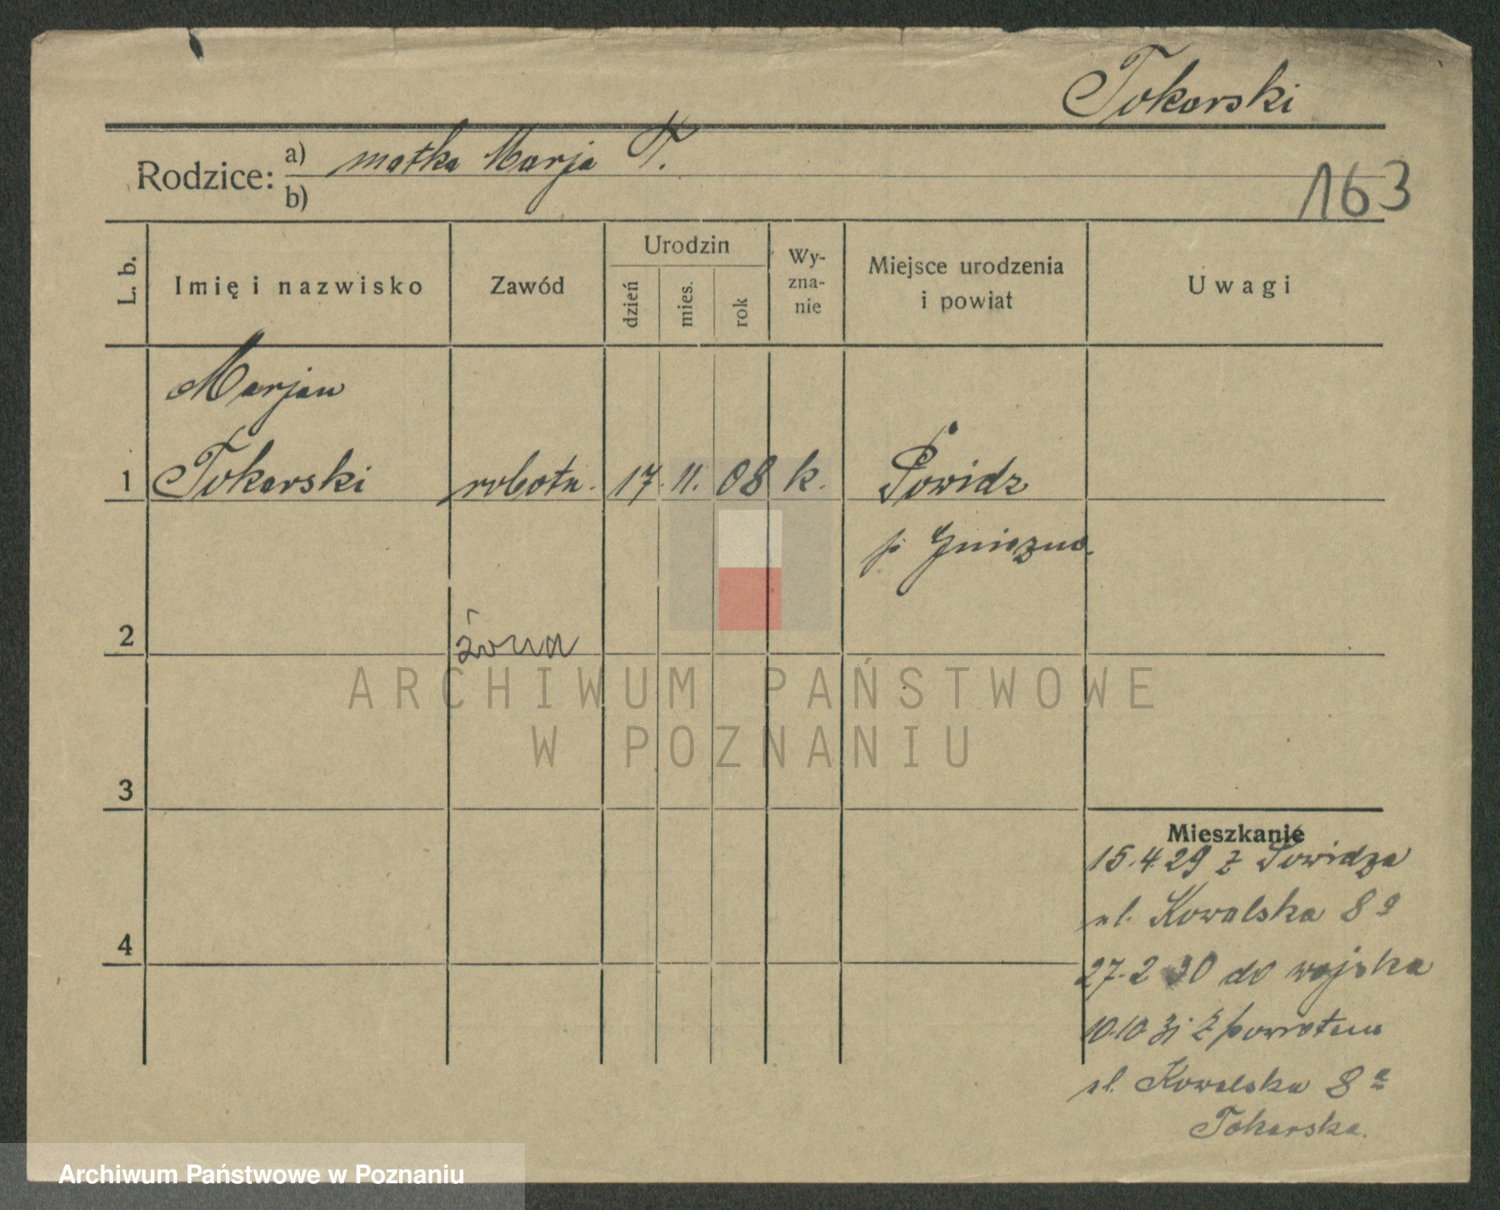 Tokarski
Rodzice: a) matka Marja T.
b)
163
L. b.
Imię i nazwisko
Zawód
Urodzin
dzień
mies.
rok
Wy-
zna-
nie
Miejsce urodzenia
i powiat
Uwagi
Marjan
1 Tokarski robotn. 17. 11. 08 k. Powidz
p Gniezno.
2
żona
3
4
Mieszkanie
15.4.29 z Powidza
ul. Kowalska 8a
27.2 30 do wojska
10.10 31 z powrotem
ul. Kowalska 8a
Tokarska.
ARCHIWUM PAŃSTWOWE
W POZNANIU
Archiwum Państwowe w Poznaniu